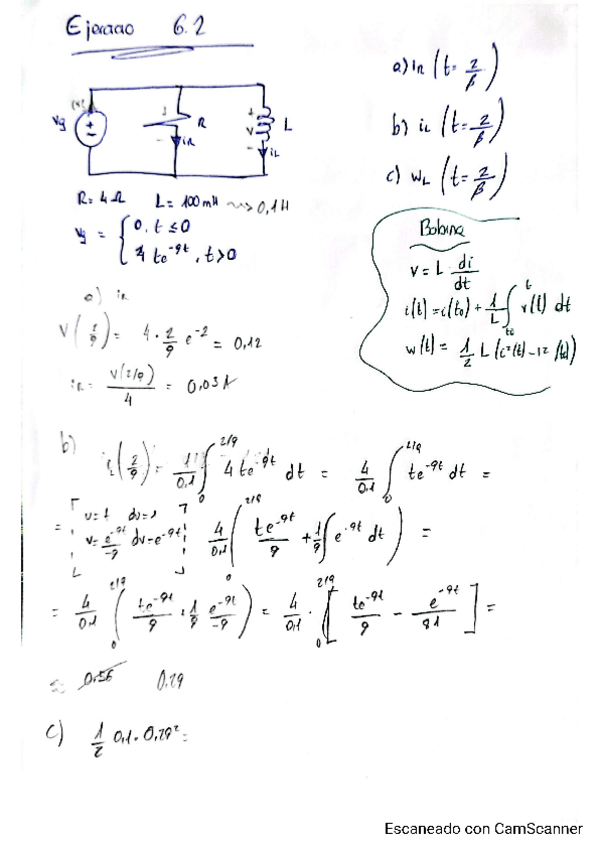 Ejercicio 6.2
a) iR (t = 2/β)
b) iL (t = 2/β)
c) WL (t = 2/β)
Vg + - R iR + V - L iL
R = 4 Ω L = 100 mH ⇝ 0,1 H
Vg = { 0, t ≤ 0
4 te^-9t, t > 0
Bobina
V = L · di/dt
i(t) = i(to) + 1/L ∫to^t v(t) dt
w(t) = 1/2 L (i²(t) - i² (to))
a) iR
V(2/9) = 4 · 2/9 e^-2 = 0,12
iR = V(2/9)/4 = 0,03 A
b) iL(2/9) = 1/0,1 ∫0^2/9 4te^-9t dt = 4/0,1 ∫0^2/9 te^-9t dt =
= [ u = t du = 1
v = e^-9t/-9 dv = e^-9t ] 4/0,1 ( te^-9t/9 + 1/9 ∫ e^-9t dt ) =
= 4/0,1 ( te^-9t/9 · 1/9 e^-9t/-9 ) = 4/0,1 · [ te^-9t/9 - e^-9t/81 ] =
≈ 0,56 0,29
c) 1/2 0,1 · 0,29² =
Escaneado con CamScanner